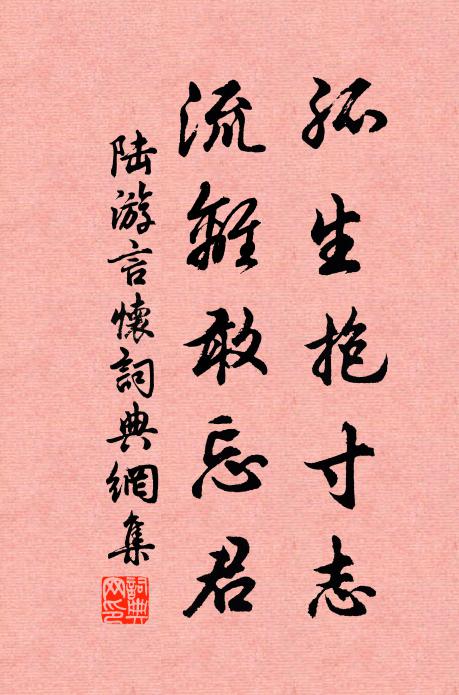 孤生抱寸志
流離敢忘君
陆游言懷詞典網集
詞典
网印